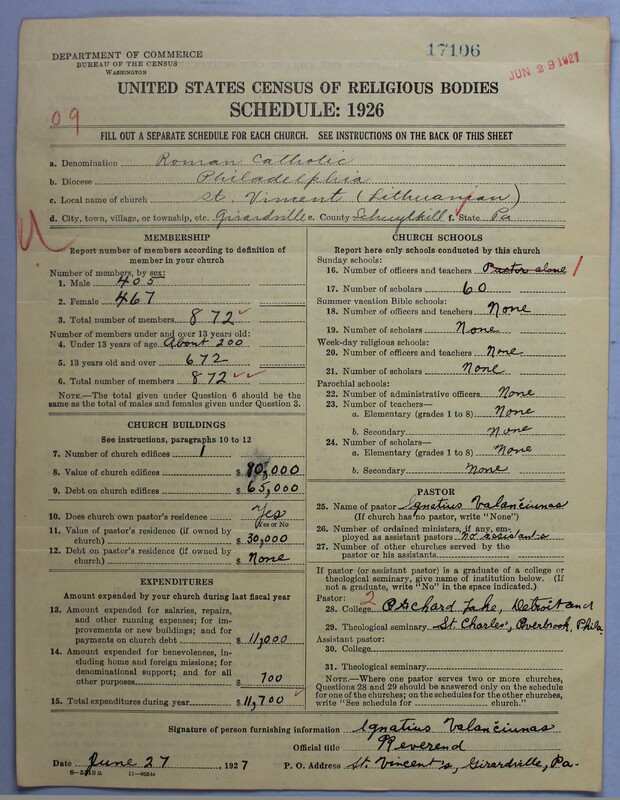 17106
JUN 29 1927
DEPARTMENT OF COMMERCE
BUREAU OF THE CENSUS
WASHINGTON
UNITED STATES CENSUS OF RELIGIOUS BODIES
SCHEDULE: 1926
09
FILL OUT A SEPARATE SCHEDULE FOR EACH CHURCH. SEE INSTRUCTIONS ON THE BACK OF THIS SHEET
a. Denomination Roman Catholic
b. Diocese Philadelphia
c. Local name of church St. Vincent (Lithuanian)
d. City, town, village, or township, etc. Girardville e. County Schuylkill f. State Pa
MEMBERSHIP
Report number of members according to definition of
member in your church
Number of members, by sex:
1. Male 405
2. Female 467
3. Total number of members 872
Number of members under and over 13 years old:
4. Under 13 years of age About 200
5. 13 years old and over 672
6. Total number of members 872
NOTE.—The total given under Question 6 should be
same as the total of males and females given under Question 3.
CHURCH BUILDINGS
See instructions, paragraphs 10 to 12
7. Number of church edifices 1
8. Value of church edifices $ 80,000
9. Debt on church edifices $ 65,000
10. Does church own pastor's residence Yes
(Yes or No)
11. Value of pastor's residence (if owned by
church) $ 30,000
12. Debt on pastor's residence (if owned by
church) $ None
EXPENDITURES
Amount expended by your church during last fiscal year
13. Amount expended for salaries, repairs,
and other running expenses; for im-
provements or new buildings; and for
payments on church debt $ 11,000
14. Amount expended for benevolences, in-
cluding home and foreign missions; for
denominational support; and for all
other purposes $ 700
15. Total expenditures during year $ 11,700
CHURCH SCHOOLS
Report here only schools conducted by this church
Sunday schools:
16. Number of officers and teachers Pastor alone 1
17. Number of scholars 60
Summer vacation Bible schools:
18. Number of officers and teachers None
19. Number of scholars None
Week-day religious schools:
20. Number of officers and teachers None
21. Number of scholars None
Parochial schools:
22. Number of administrative officers None
23. Number of teachers—
a. Elementary (grades 1 to 8) None
b. Secondary None
24. Number of scholars—
a. Elementary (grades 1 to 8) None
b. Secondary None
PASTOR
25. Name of pastor Ignatius Valančiunas
(If church has no pastor, write "None")
26. Number of ordained ministers, if any, em-
ployed as assistant pastors no assistants
27. Number of other churches served by the
pastor or his assistants
If pastor (or assistant pastor) is a graduate of a college or
theological seminary, give name of institution below. (If
not a graduate, write "No" in the space indicated.)
Pastor: 2
28. College Orchard Lake, Detroit and
29. Theological seminary St. Charles', Overbrook, Phila
Assistant pastor:
30. College
31. Theological seminary
NOTE.—Where one pastor serves two or more churches,
Questions 28 and 29 should be answered only on the schedule
for one of the churches; on the schedules for the other churches,
write "See schedule for church."
Signature of person furnishing information Ignatius Valančiunas
Official title Reverend
Date June 27, 1927 P. O. Address St. Vincent's, Girardville, Pa.